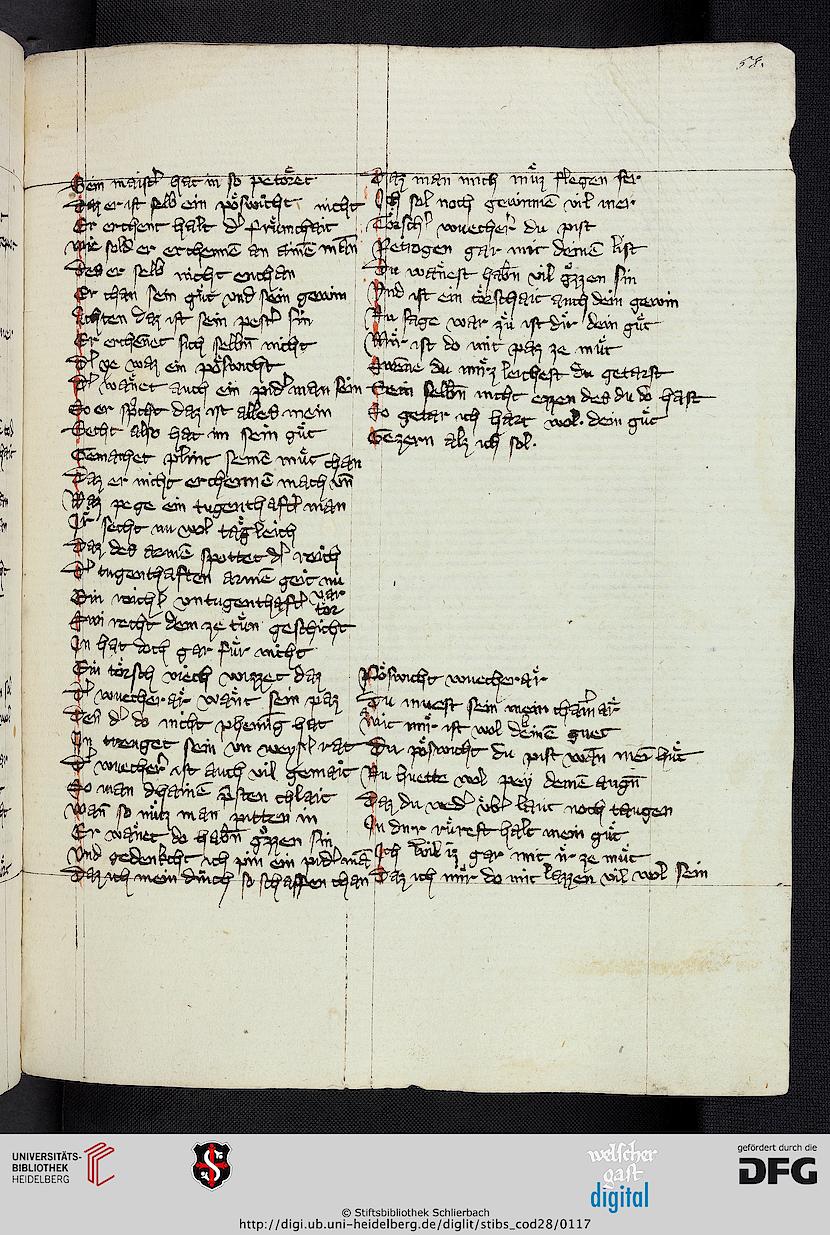 58.
Sein maist͛ hat in so petoͤret
Daz er ist selb ein poͤswicht nicht
Er erchent halt d͛ fruͤmchait
wie sold er erchennē an ainē man
Des er selb nicht enchan
Er chan sein guͤt vnd sein gewin
Achten daz ist sein pest͛ sin
Er erchēnet sich selbn̄ nicht
D͛ ye waz ein poͤswicht
D͛ waͤnet auch ein pid͛ man sein
So er spͥcht daz ist alles mein
Secht also hat im sein guͤt
Gemachet plint seinē muͤt chan
Daz er nicht erchennē mach vn̄
Waz pege ein tugenthaft͛ man
Ir secht nu wol taͤgleich
Daz des armē spottet d͛ reich
D͛ tugenthaften armē geit nu
Ein reich͛ vntugenthaft͛ var tor
Swi recht dem ze tuͤn geschicht
In hat doch gar fuͤr nicht
Ein toͤrsch viech wizzet daz
D͛ wuecheraͤr waͤnt sein paz
Den d͛ do nicht phennig hat
In trenget sein vn weysl͛ rat
D͛ wuecher͛ ist auch vil gemait
So man dhainē pͥsten chlait
wan̄ so muͤz man pitten in
Er waͤnet do habn̄ goͤzzen sin
Vnd gedenkcht ich pin ein pid͛ mā
Daz ich mein dinch so schaffen chan
Daz man mich muͤz flegen ser
Ich sol noch gewinnen vil mer
Toͤrsch͛ wuecher͛ du pist
Petrogen gar mit deinē list
Du waͤnest habn̄ vil goͤzzen sin
Vnd ist ein toͤrschait auch dein gewin
Nu sage war zuͤ ist dir dein guͤt
Mir ist do mit paz ze muͤt
Swēne du mirz leichest du getarst
Sein selbn̄ nicht ezzen des du do hast
So getar ich hart wol. dein guͤt
Gezern alz ich sol.
Poͤswicht wuecheraͤr
Du muest sein mein chamͥaͤr
Mit mir ist wol deinē guet
Du poͤswicht du pist wan̄ mei͞ huͤt
Nu huette wol pey deinē augn̄
Daz du wed͛ vͤb͛ laut noch taugen
In dirr ruͤrest halt mein guͤt
Ich wil iz gar mit ir ze muͤt
Daz ich mir do mit lazzen vil wol sein
UNIVERSITÄTS-
BIBLIOTHEK
HEIDELBERG
welscher
gast
digital
gefördert durch die
DFG
© Stiftsbibliothek Schlierbach
http://digi.ub.uni-heidelberg.de/diglit/stibs_cod28/0117